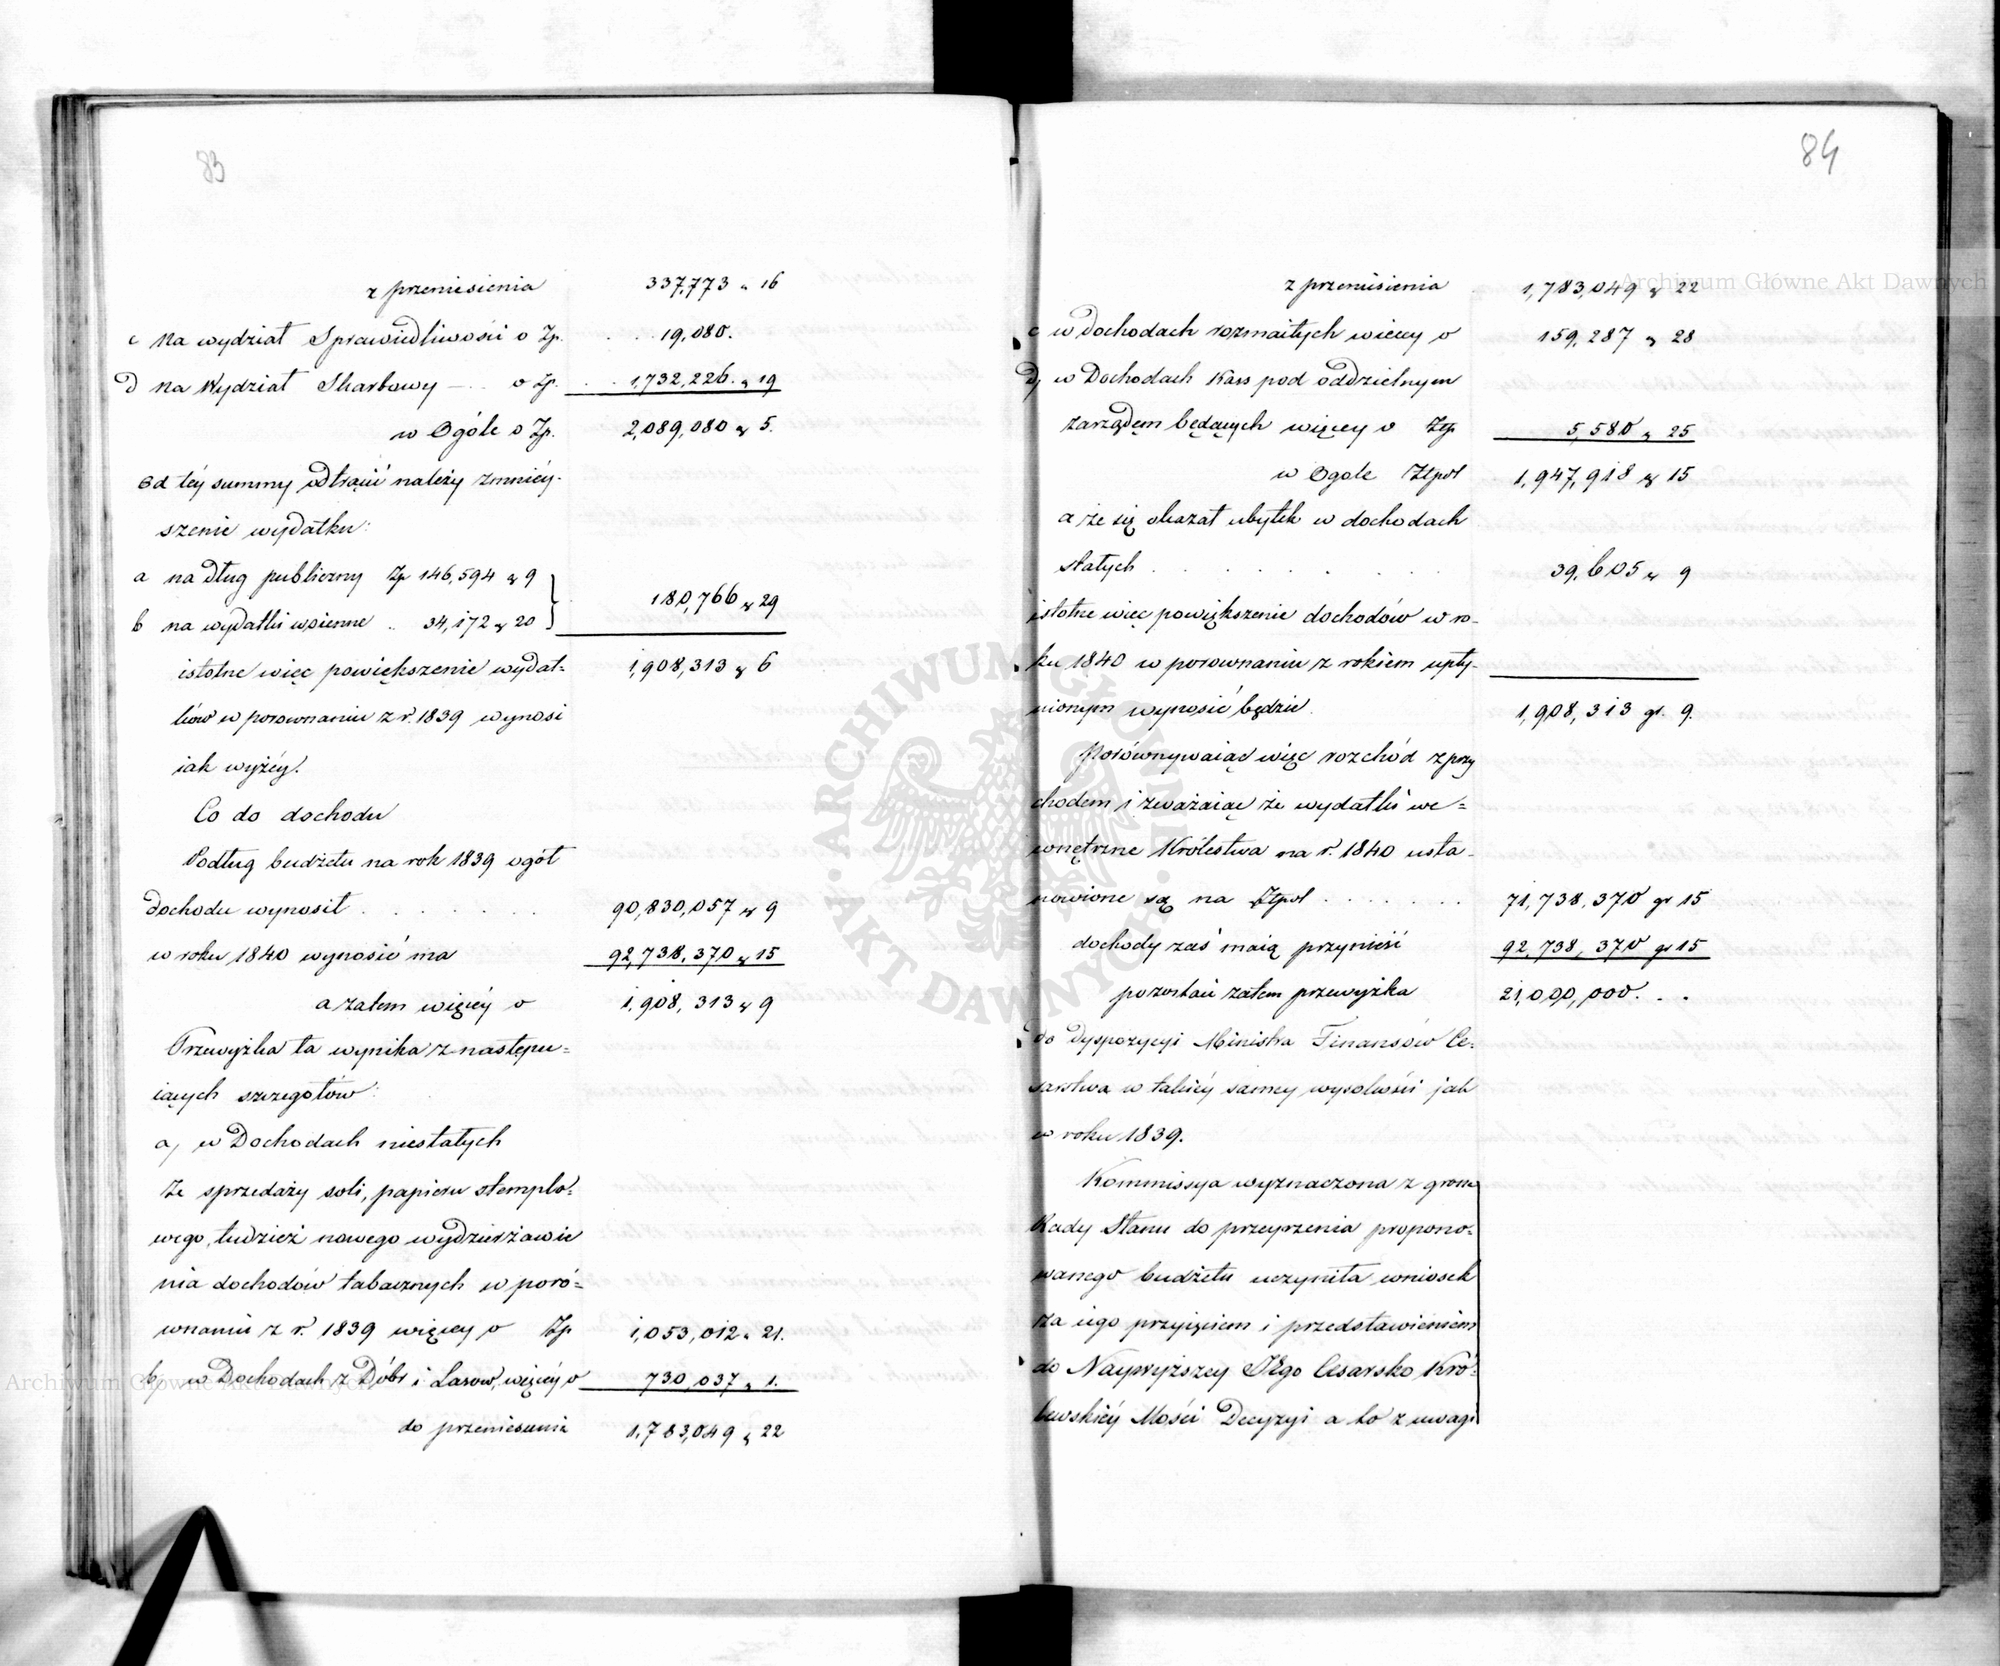 83
z przeniesienia 337,773 „ 16
c na wydział Sprawiedliwości o Zp. . . 19,080.
d na Wydział Skarbowy — . . o Zp. . . 1,732,226. „ 19
w Ogóle o Zp. 2,089,080 „ 5.
Od téy summy odtrącić należy zmniéy-
szenie wydatku:
a na dług publiczny Zp 146,594 „ 9
180,766 „ 29
b na wydatki woienne .. 34,172 „ 20
istotne więc powiększenie wydat= 1,908,313 „ 6
ków w porownaniu z r. 1839 wynosi
iak wyżéy.
Co do dochodu
Podług budżetu na rok 1839 ogół
dochodu wynosił . . . . . 90,830,057 „ 9
w roku 1840 wynosić ma 92,738,370 „ 15
a zatem więcéy o 1,908,313 „ 9
Przewyżka ta wynika z następu=
iących szczegółów:
a, w Dochodach niestałych
Ze sprzedaży soli, papieru stemplo=
wego, tudzież nowego wydzierżawie
nia dochodów tabacznych w poró=
wnaniu z r. 1839 więcey o Zp 1,053,012 „ 21.
b, w Dochodach z Dóbr i Lasow, więcéy o 730,037 „ 1.
do przeniesienia 1,783,049 „ 22
84
z przeniesienia 1,783,049 „ 22
c w dochodach rozmaitych wiecey o 159,287 „ 28
d, w Dochodach Kass pod oddzielnym
zarządem będących więcey o Złp 5,580 „ 25
w Ogole Złpol 1,947,918 „ 15
a że się okazał ubytek w dochodach
stałych . . . . . . 39,605 „ 9
istotne więc powiększenie dochodów w ro-
ku 1840 w porownaniu z rokiem upły-
nionym wynosić będzie. 1,908,313 gr. 9.
Porównywaiąc więc rozchód z przy
chodem i zważaiąc że wydatki we=
wnętrzne Królestwa na r. 1840 usta-
nowione są na Złpol . . . . . . 71,738,370 gr 15
dochody zaś maią przynieść 92,738,370 gr 15
pozostaie zatem przewyżka 21,000,000. . .
do dyspozycyi Ministra Finansów Ce-
sarstwa w takiéy samey wysokości jak
w roku 1839.
Kommissya wyznaczona z grona
Rady Stanu do przeyrzenia propono=
wanego budżetu uczyniła wniosek
za iego przyięciem i przedstawieniem
do Naywyższey JEgo Cesarsko Kró-
lewskiéy Mości Decyzyi a to z uwagi
Archiwum Główne Akt Dawnych
ARCHIWUM GŁÓWNE • AKT DAWNYCH •
Archiwum Główne Akt Dawnych